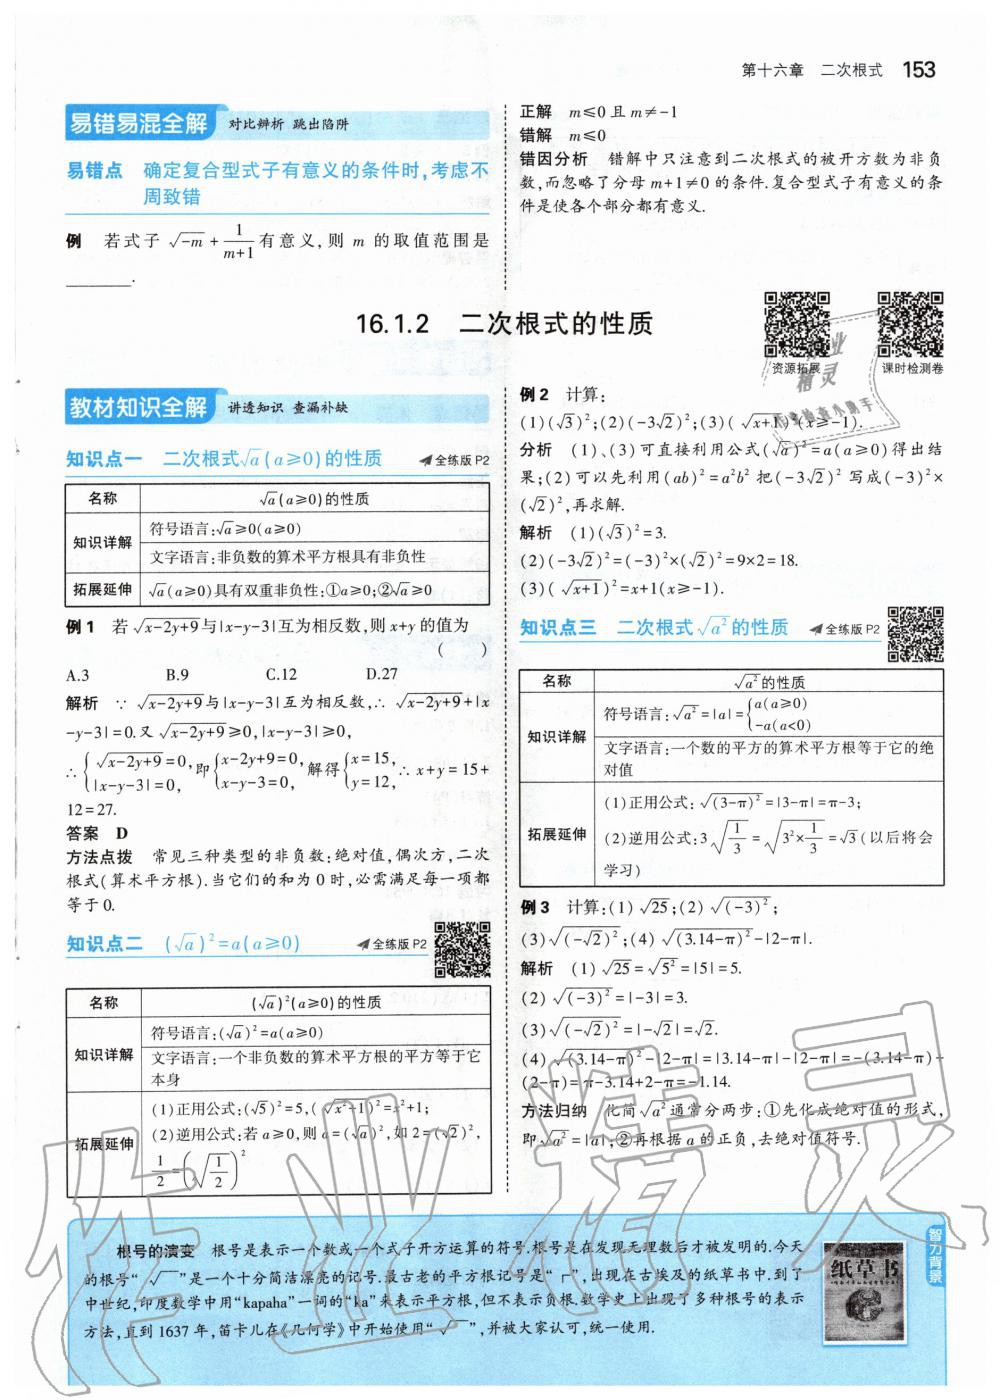 第十六章 二次根式 153
易错易混全解 对比辨析 跳出陷阱
易错点 确定复合型式子有意义的条件时,考虑不
周致错
例 若式子 √-m + 1/(m+1) 有意义,则 m 的取值范围是
________.
正解 m≤0 且 m≠-1
错解 m≤0
错因分析 错解中只注意到二次根式的被开方数为非负
数,而忽略了分母 m+1≠0 的条件.复合型式子有意义的条
件是使各个部分都有意义.
16.1.2 二次根式的性质
资源拓展
课时检测卷
教材知识全解 讲透知识 查漏补缺
知识点一 二次根式√a(a≥0)的性质 全练版 P2
名称 √a(a≥0)的性质
知识详解 符号语言:√a≥0(a≥0)
文字语言:非负数的算术平方根具有非负性
拓展延伸 √a(a≥0)具有双重非负性:①a≥0;②√a≥0
例 1 若√(x-2y+9)与|x-y-3|互为相反数,则 x+y 的值为
( )
A.3 B.9 C.12 D.27
解析 ∵ √(x-2y+9)与|x-y-3|互为相反数,∴ √(x-2y+9)+|x
-y-3|=0.又√(x-2y+9)≥0,|x-y-3|≥0,
∴ {√(x-2y+9)=0, |x-y-3|=0, 即 {x-2y+9=0, x-y-3=0, 解得 {x=15, y=12, ∴ x+y=15+
12=27.
答案 D
方法点拨 常见三种类型的非负数:绝对值,偶次方,二次
根式(算术平方根).当它们的和为 0 时,必需满足每一项都
等于 0.
知识点二 (√a)²=a(a≥0) 全练版 P2
名称 (√a)²(a≥0)的性质
知识详解 符号语言:(√a)²=a(a≥0)
文字语言:一个非负数的算术平方根的平方等于它
本身
拓展延伸 (1)正用公式:(√5)²=5,(√(x²+1))²=x²+1;
(2)逆用公式:若 a≥0,则 a=(√a)²,如 2=(√2)²,
1/2=(√(1/2))²
例 2 计算:
(1)(√3)²;(2)(-3√2)²;(3)(√(x+1))²(x≥-1).
分析 (1)、(3)可直接利用公式(√a)²=a(a≥0)得出结
果;(2)可以先利用(ab)²=a²b² 把(-3√2)² 写成(-3)²×
(√2)²,再求解.
解析 (1)(√3)²=3.
(2)(-3√2)²=(-3)²×(√2)²=9×2=18.
(3)(√(x+1))²=x+1(x≥-1).
知识点三 二次根式√a²的性质 全练版 P2
名称 √a²的性质
知识详解 符号语言:√a²=|a|={a(a≥0) -a(a<0)
文字语言:一个数的平方的算术平方根等于它的绝
对值
拓展延伸 (1)正用公式:√(3-π)²=|3-π|=π-3;
(2)逆用公式:3√(1/3)=√(3²×1/3)=√3(以后将会
学习)
例 3 计算:(1)√25;(2)√(-3)²;
(3)√(-√2)²;(4)√(3.14-π)²-|2-π|.
解析 (1)√25=√5²=|5|=5.
(2)√(-3)²=|-3|=3.
(3)√(-√2)²=|-√2|=√2.
(4)√(3.14-π)²-|2-π|=|3.14-π|-|2-π|=-(3.14-π)+
(2-π)=π-3.14+2-π=-1.14.
方法归纳 化简√a²通常分两步:①先化成绝对值的形式,
即√a²=|a|;②再根据 a 的正负,去绝对值符号.
根号的演变 根号是表示一个数或一个式子开方运算的符号.根号是在发现无理数后才被发明的.今天
的根号“√‾”是一个十分简洁漂亮的记号.最古老的平方根记号是“┌”,出现在古埃及的纸草书中.到了
中世纪,印度数学中用“kapaha”一词的“ka”来表示平方根,但不表示负根.数学史上出现了多种根号的表示
方法,直到 1637 年,笛卡儿在《几何学》中开始使用“√‾”,并被大家认可,统一使用.
智力背景
纸草书
作业精灵